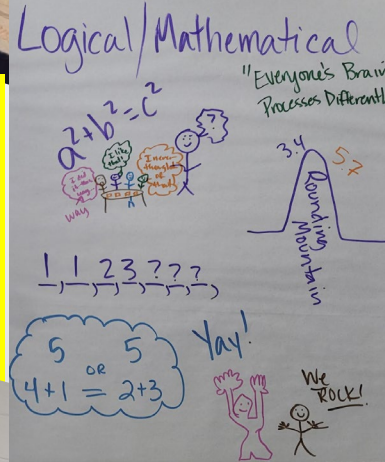 Logical/Mathematical
"Everyone's Brain
Processes Different
a²+b²=c²
???
I like
that!
I did
it this
way
I never
thought
of
that!
way
3.4
5.7
Rounding
Mountain
1, 1, 2, 3, ?, ?, ?,
5 OR 5
4+1 = 2+3
Yay!
We
ROCK!